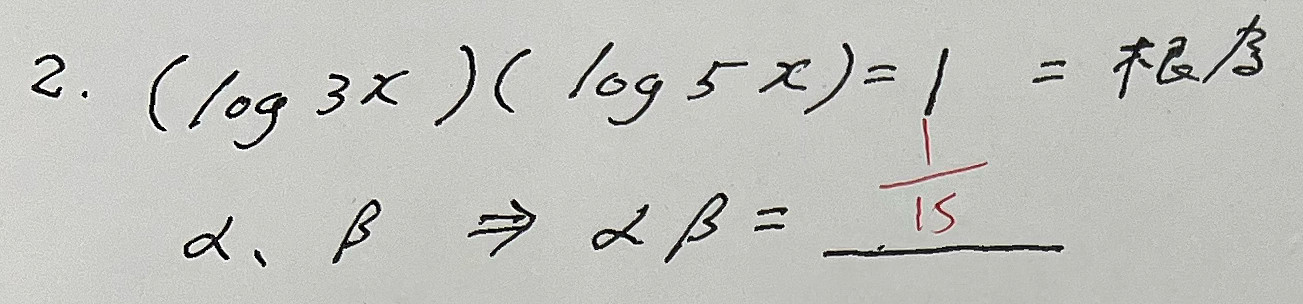 2. (log 3x)(log 5x)=1 = 根為
α、β ⇒ αβ = 1/15